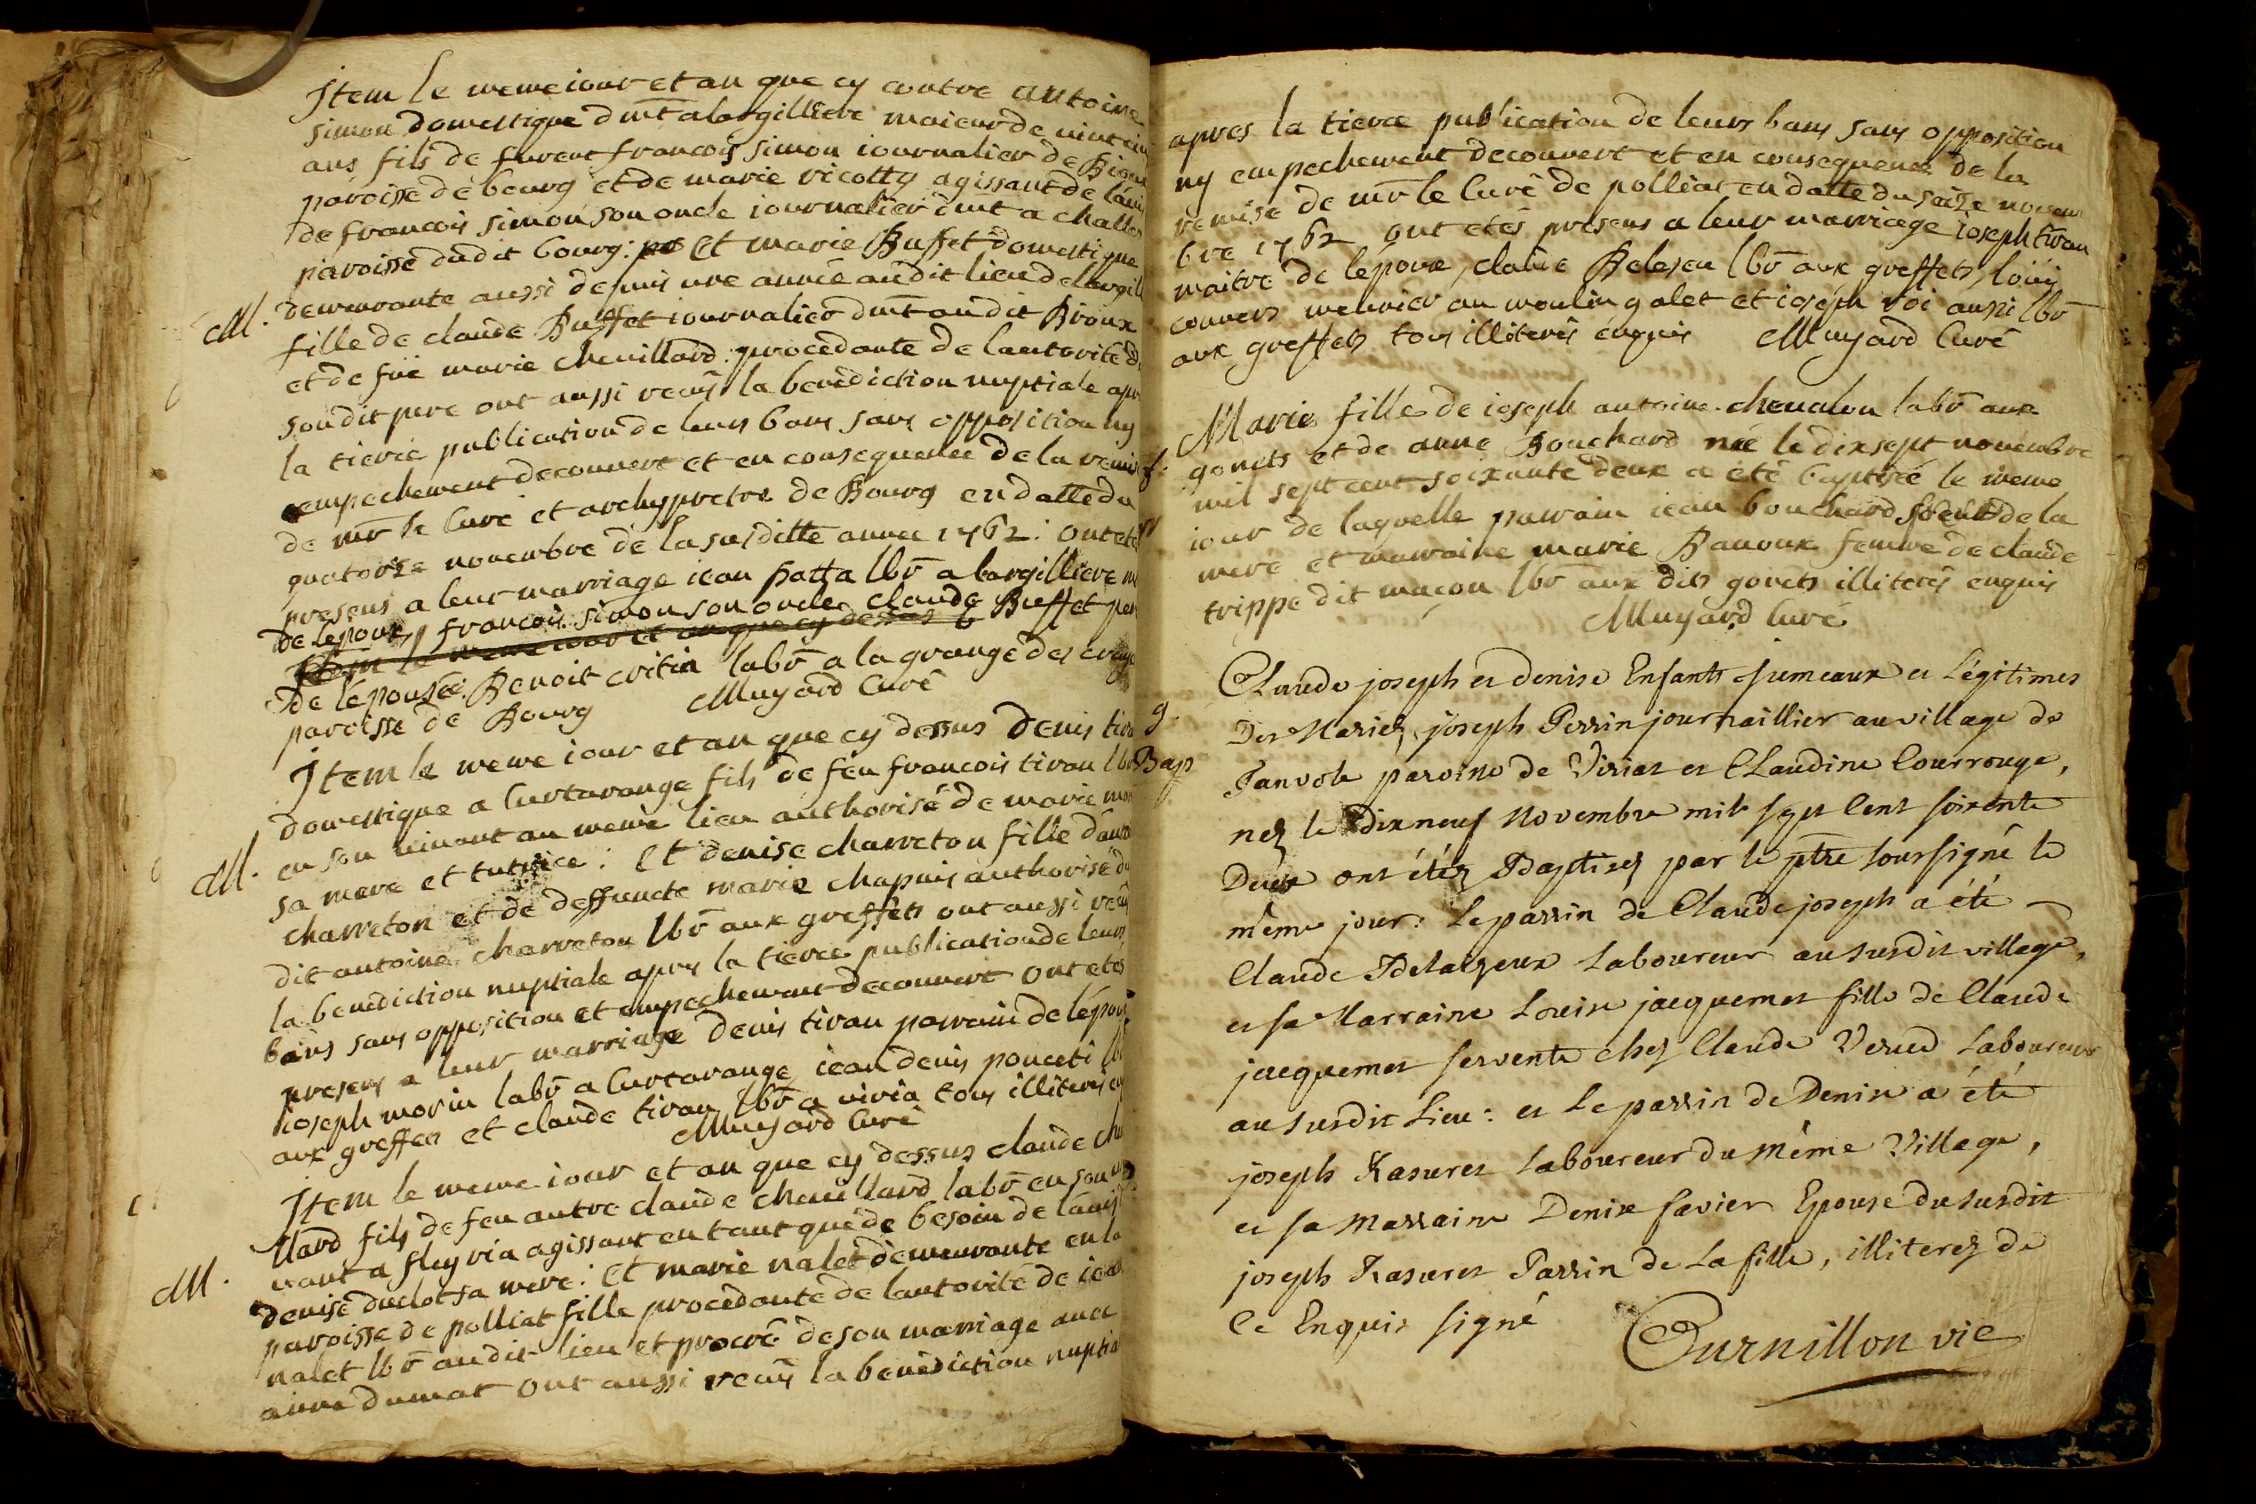 Item le meme iour et an que cy contre antoine
simon domestique dmt a largilliere maieur de vint cin
ans fils de furent francois simon iournalier de
paroisse de bourg et de marie ricotty agissant de lavis
de francois simon son oncle iournalier dmt a challes
paroisse dudit bourg: Et marie Buffet domestique
M. demeurante aussi depuis une année audit lieu de largil
fille de claude Buffet iournalier dmt audit Broux
et de füe marie cheuillard: procèdante de lautorité d
sondit pere ont aussi reçus la benédiction nuptiale apr
la tierce publication de leurs bans sans opposition ny
empechement decouvert et en consequence de la remise
de mr le Curé et archypretre de Bourg en datte du
quatorze novembre de la susditte année 1762: ont etes
presens a leur marriage iean patta lbr a largilliere m
de lepoux, francois simon son oncle claude Buffet per
Item le meme iour et an que cy dessus
de lépousée: Benoit critin labr a la grange des
paroisse de Bourg Muyard Curé
Item le meme iour et an que cy dessus Denis tiran
domestique a Curtarange fils de feu francois tiran lbr
en son vivant au meme lieu authorisé de marie mor
M. sa mere et tutrice: Et denise charveton fille d'anto
charveton et de deffuncte marie chapuis authorisé du
dit antoine charveton lbr aux greffets ont aussi reçus
la benediction nuptiale apres la tierce publication de leurs
bans sans opposition et empechement decouvert ont etes
presens a leur marriage denis tiran parrain de lépoux
ioseph morin labr a Curtarange, iean denis ponceti lb
aux greffets et claude tiran lbr a viria tous illiterés en
Muyard Curé
Item le meme iour et an que cy dessus claude cheu
llard fils de feu autre claude cheuillard labr en son vi
vant a fleyria agissant en tant que de besoin de lauis
M. denise duclot sa mere: Et marie nalet demeurante en la
paroisse de polliat fille procèdante de lautorité de iean
nalet lbr audit lieu et procré de son marriage auec
anne dumat ont aussi reçus la benédiction nuptia
apres la tierce publication de leurs bans sans opposition
ny empechement decouvert et en consequence de la
remise de mr le Curé de polliat en datte du saize novem
bre 1762 ont etés presens a leur marriage ioseph tiran
maitre de lepoux, claude Belesen lbr aux greffets, loüis
convers meunier au moulin galet et ioseph roi aussi lbr
aux greffets tous illiterés enquis Muyard Curé
Marie fille de ioseph antoine chevalon labr aux
gonets et de anne Bouchard née le dixsept novembre
mil sept cent soixante deux a été baptisée le meme
iour de laquelle parrain iean bouchard de la
mere et marraine marie Banoux femme de claude
trippe dit maçon lbr aux dits gonets illiterés enquis
Muyard Curé
9.
Bap
Claude joseph et denise Enfants jumeaux et Légitimes
Des Mariez, joseph Perrin journaillier au village de
Tanvole paroisse de Viriat et Claudine Courrouge,
nez le dix neuf Novembre mil sept Cent soixente
Deux ont étéz Baptisez par le ptre soussigné le
même jour: Le parrin de Claude joseph a été
Claude Delaizeux Laboureur au susdit village,
et sa Marraine Louise jacquemet fille de Claude
jacquemet servente chez Claude Veru Laboureur
au susdit Lieu: et Le parrin de Denise a été
joseph Rasurez Laboureur du même Village,
et sa marraine Denise favier Epouse du susdit
joseph Rasurez Parrin de La fille, illiterez de
Ce Enquis signé Curnillon vic